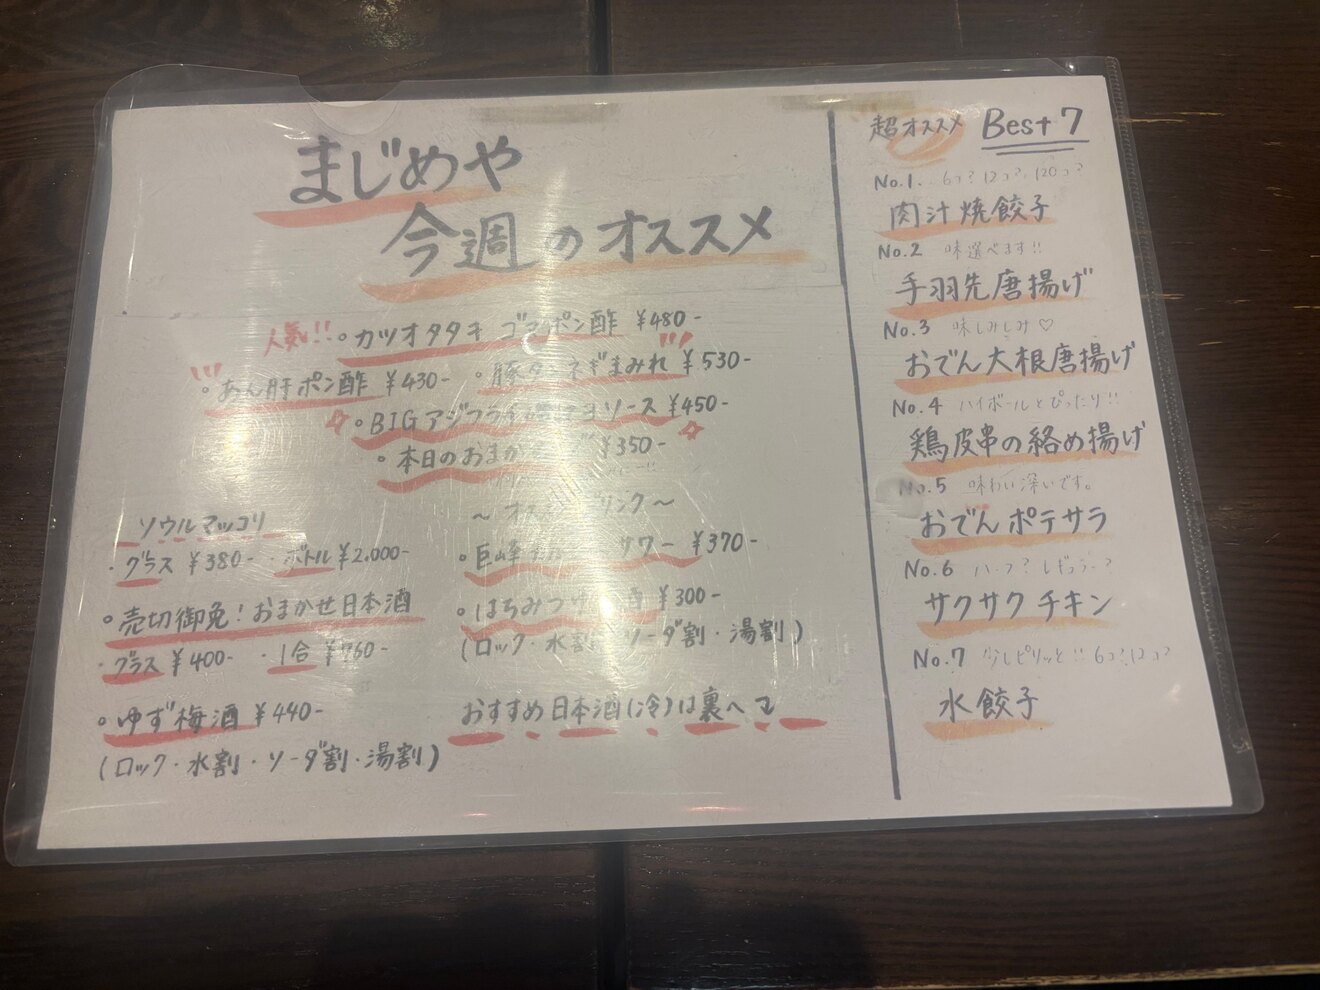 まじめや
今週のオススメ
人気!!。カツオタタキ ゴマポン酢 ¥480-
。あん肝ポン酢 ¥430- 。豚 ねぎまみれ ¥530-
☆。BIGアジフライ ソース ¥450- ☆
。本日のおまか ¥350-
ソウルマッコリ
・グラス ¥380- ・ボトル ¥2.000-
。売切御免!おまかせ日本酒
・グラス ¥400- ・1合 ¥760-
。ゆず梅酒 ¥440-
(ロック・水割・ソーダ割・湯割)
〜 オス リンク 〜
。巨峰 サワー ¥370-
。はちみつ 酒 ¥300-
(ロック・水割 ソーダ割・湯割)
おすすめ日本酒(冷)は裏へ
超オススメ Best 7
No.1. 6コ?12コ?120コ?
肉汁焼餃子
No.2 味選べます!!
手羽先唐揚げ
No.3 味しみしみ♡
おでん大根唐揚げ
No.4 ハイボールとぴったり!!
鶏皮串の絡め揚げ
No.5 味わい深いです。
おでんポテサラ
No.6 ハーフ?
サクサクチキン
No.7 少しピリッと!!6コ?12コ?
水餃子